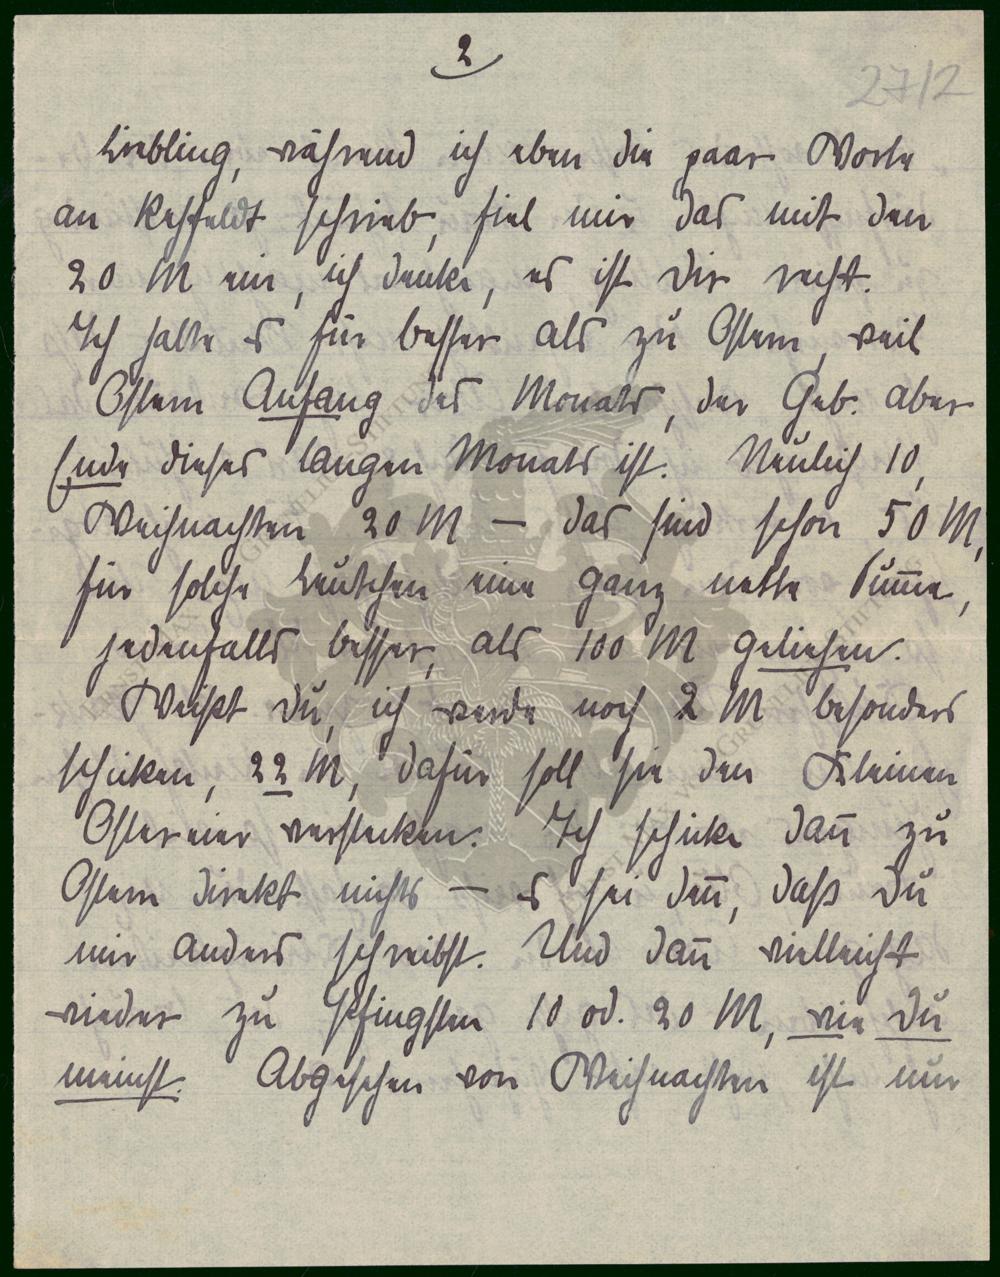 2
27/2
Liebling, während ich eben die paar Worte
an Rehfeldt schrieb, fiel mir das mit den
20 M ein, ich denke, es ist Dir recht.
Ich halte es für besser als zu Ostern, weil
Ostern Anfang des Monats, der Geb. aber
Ende dieses langen Monats ist. Neulich 10,
Weihnachten 20 M — das sind schon 50 M,
für solche Leutchen eine ganz nette Sum̅e,
jedenfalls besser, als 100 M geliehen.
Weißt Du, ich werde noch 2 M besonders
schicken, 22 M, dafür soll sie den Kleinen
Ostereier verstecken. Ich schicke dan̅ zu
Ostern direkt nichts — es sei den̅, daß Du
mir anders schreibst. Und dan̅ vielleicht
wieder zu Pfingsten 10 od. 20 M, wie Du
meinst. Abgesehen von Weihnachten ist nur